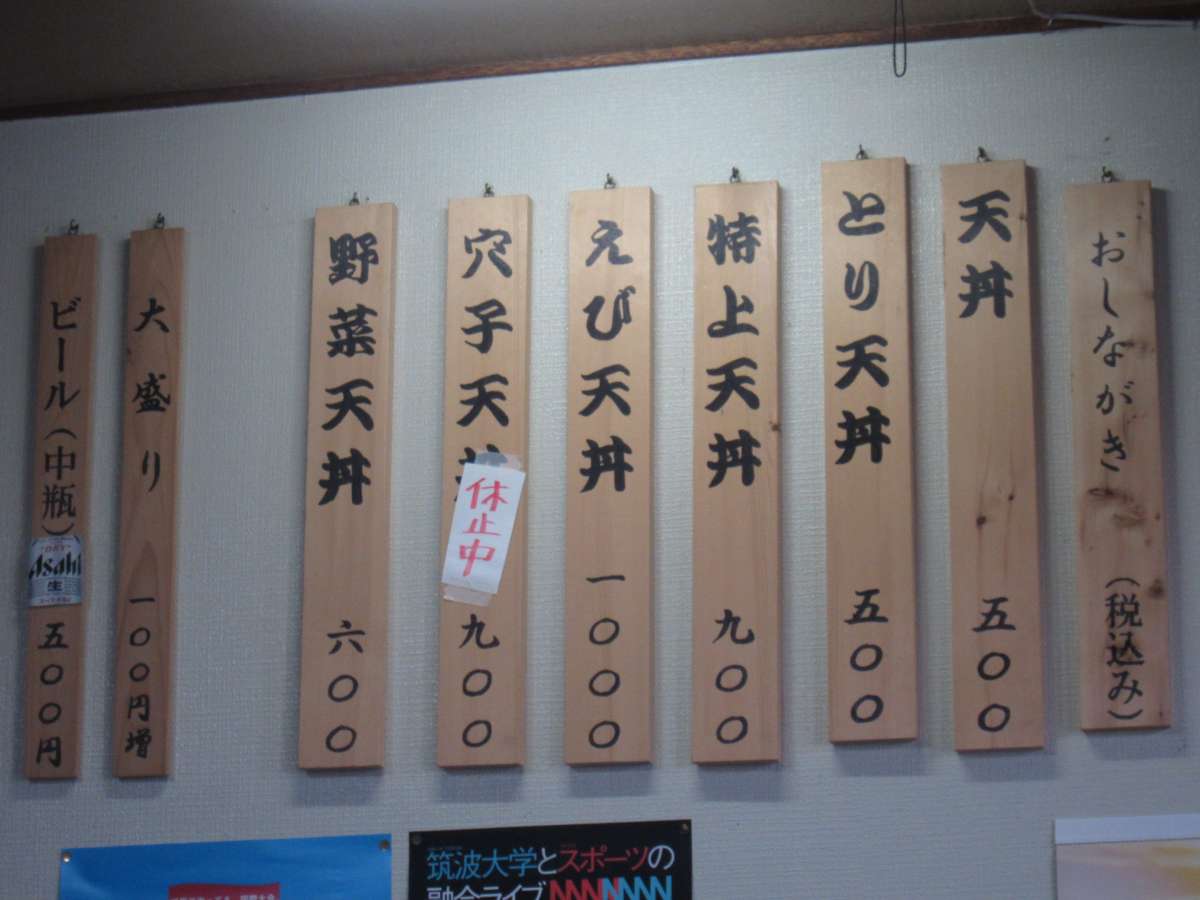 おしながき(税込み)
天丼 五〇〇
とり天丼 五〇〇
特上天丼 九〇〇
えび天丼 一〇〇〇
穴子天丼 九〇〇
休止中
野菜天丼 六〇〇
大盛り 一〇〇円増
ビール(中瓶) 五〇〇円
Asahi
生
筑波大学とスポーツの
融合ライブ